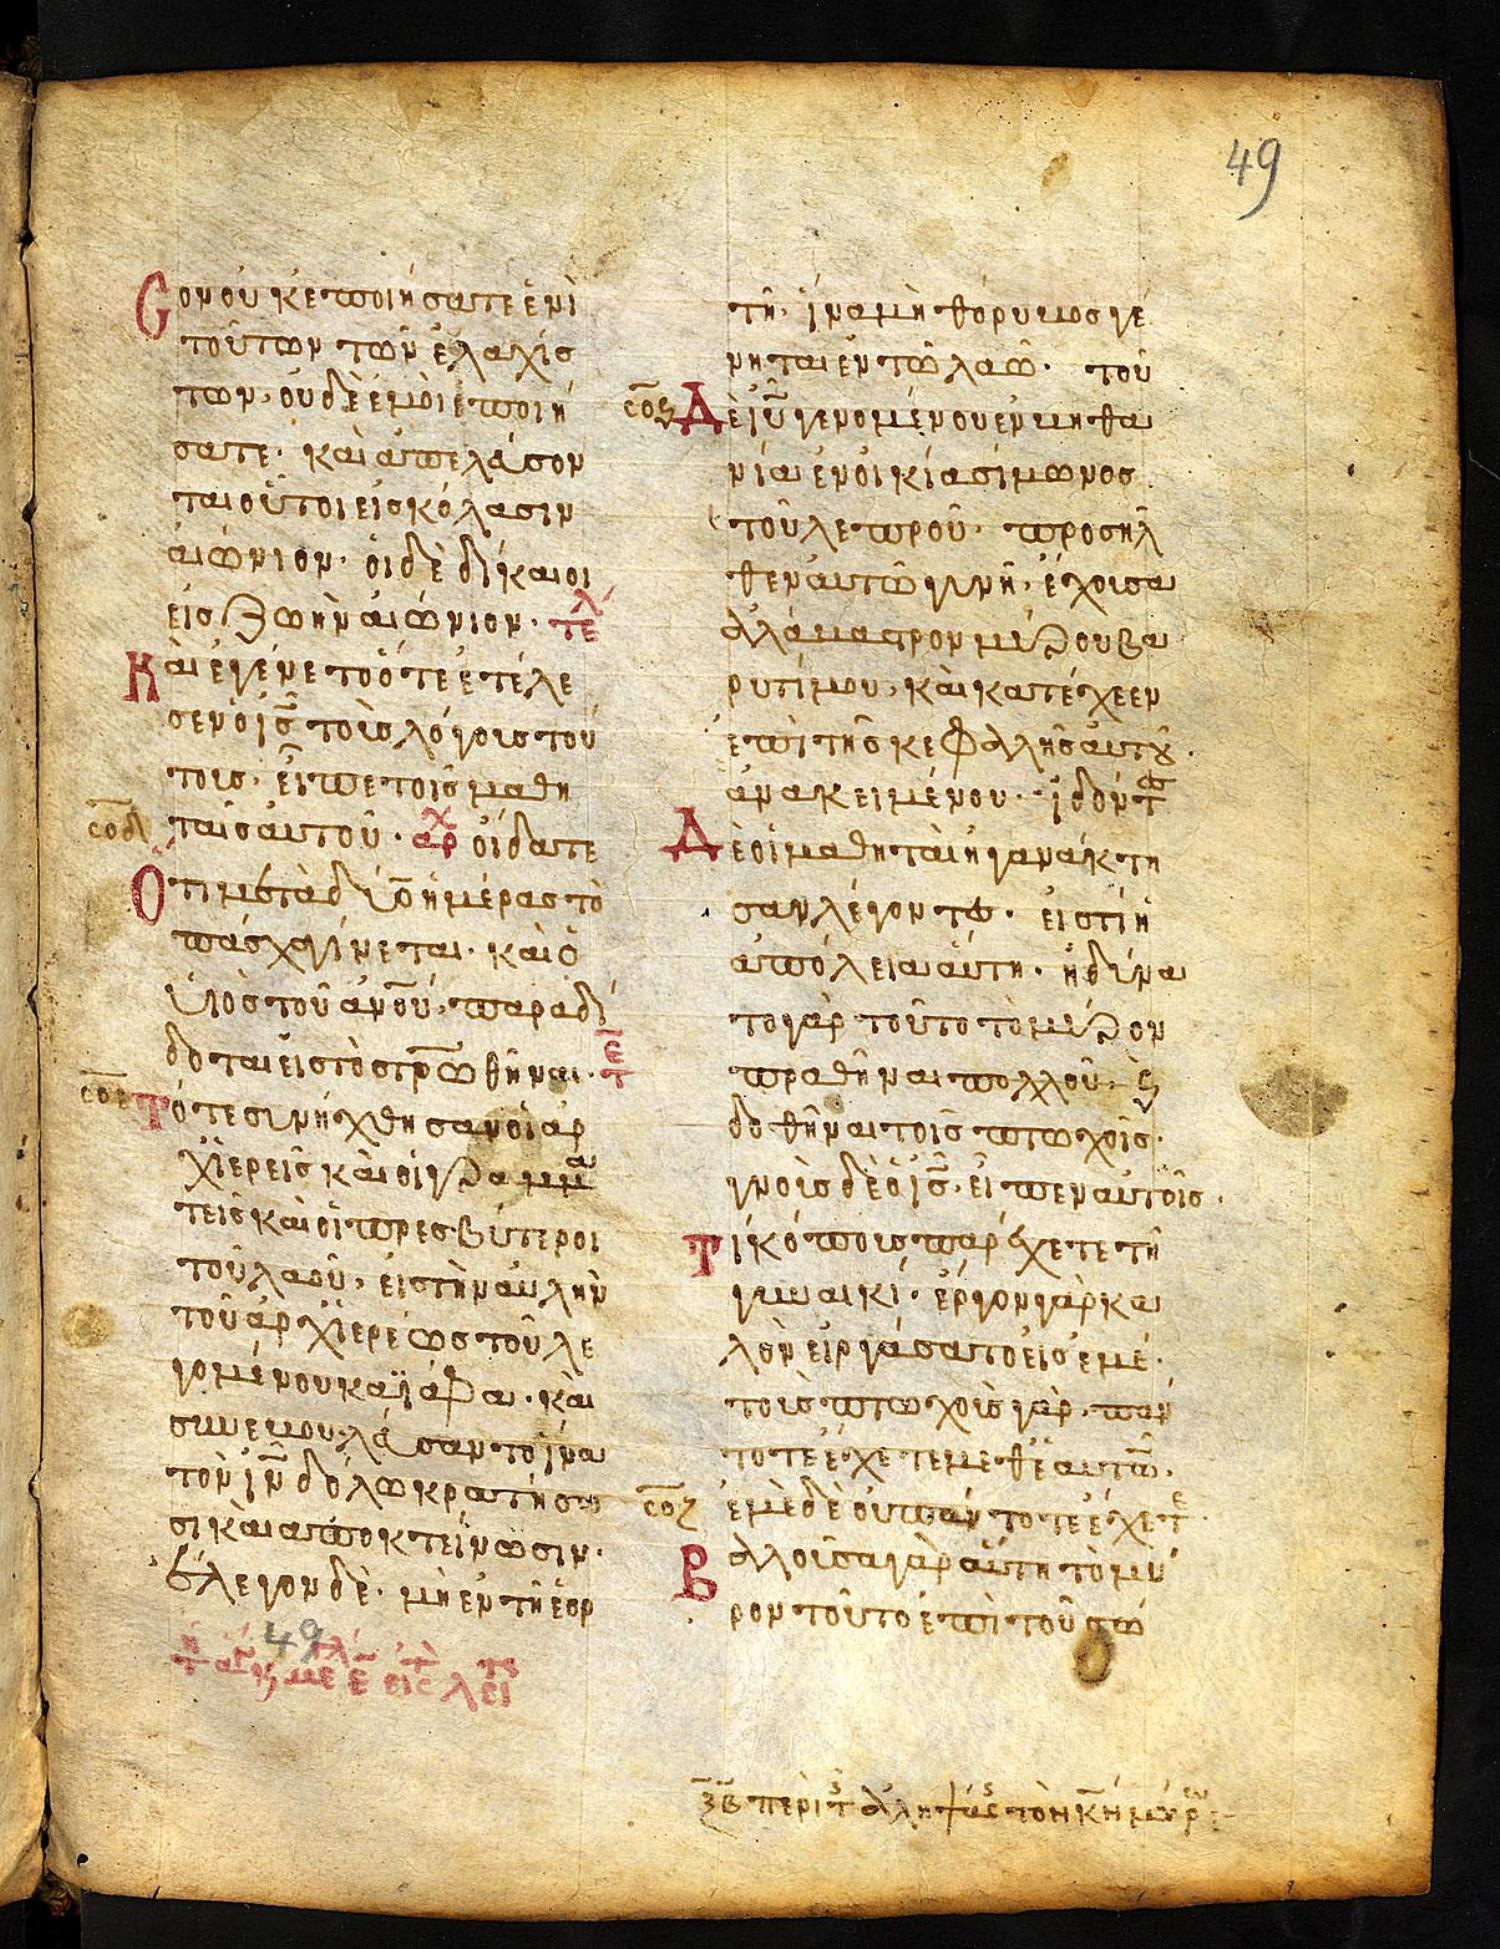 49
Ϲονοὐκεποιήσατεἑνὶ
τούτων τῶν ἐλαχίσ
των· οὐδὲ ἐμοὶ ἐποιή
σατε· καὶ ἀπελεύσον
ται οὗτοι εἰς κόλασιν
αἰώνιον· οἱ δὲ δίκαιοι
εἰς ζωὴν αἰώνιον· τελ
Καὶ ἐγένετο ὅτε ἐτέλε
σεν ὁ ι̅ς̅ τοὺς λόγους τού
τους· εἶπε τοῖς μαθη
ταῖς αὐτοῦ· αρχ οἴδατε
σ̅ο̅δ̅
Ὅτι μετὰ δύο ἡμέρας τὸ
πάσχα γίνεται· καὶ ὁ
υἱὸς τοῦ ἀνου, παραδί
δοται εἰς τὸ στρωθῆναι·
σ̅ο̅ε̅ Τότε συνήχθησαν οἱ ἀρ
χιερεῖς καὶ οἱ γραμμα
τεῖς καὶ οἱ πρεσβύτεροι
τοῦ λαοῦ, εἰς τὴν αὐλὴν
τοῦ ἀρχιερέως τοῦ λε
γομένου καϊάφα· καὶ
συνεβουλεύσαντο ἵνα
τὸν ι̅ν̅ δόλω κρατήσω
σι καὶ ἀποκτείνωσιν·
ἔλεγον δὲ· μὴ ἐν τῇ ἑορ
49
τῇ· ἵνα μὴ θόρυβος γέ
νηται ἐν τῶ λαῶ· τοῦ
σ̅ο̅ς̅ Δὲ ι̅υ̅ γενομένου ἐν βηθα
νία ἐν οἰκία σίμωνος
τοῦ λεπροῦ· προσῆλ
θεν αὐτῶ γυνὴ, ἔχουσα
ἀλάβαστρον μύρου βα
ρυτίμου, καὶ κατέχεεν
ἐπὶ τῆς κεφαλῆς αὐτοῦ
ἀνακειμένου· ἰδόντ
Δὲ οἱ μαθηταὶ ἠγανάκτη
σαν λέγοντες· εἰς τί ἡ
ἀπώλεια αὕτη· ἠδύνα
το γὰρ τοῦτο τὸ μύρον
πραθῆναι πολλοῦ, ϗ
δοθῆναι τοῖς πτωχοῖς·
γνοὺς δὲ ὁ ι̅ς̅· εἶπεν αὐτοῖς·
Τί κόπους παρέχετε τῇ
γυναικί· ἔργον γὰρ κα
λὸν εἰργάσατο εἰς ἐμέ·
τοὺς πτωχοὺς γὰρ, πάν
τοτε ἔχετε μεθ' ἑαυτῶν·
σ̅ο̅ζ̅ ἐμὲ δὲ οὐ πάντοτε ἔχετε·
Βαλοῦσα γὰρ αὕτη τὸ μύ
ρον τοῦτο ἐπὶ τοῦ σώ